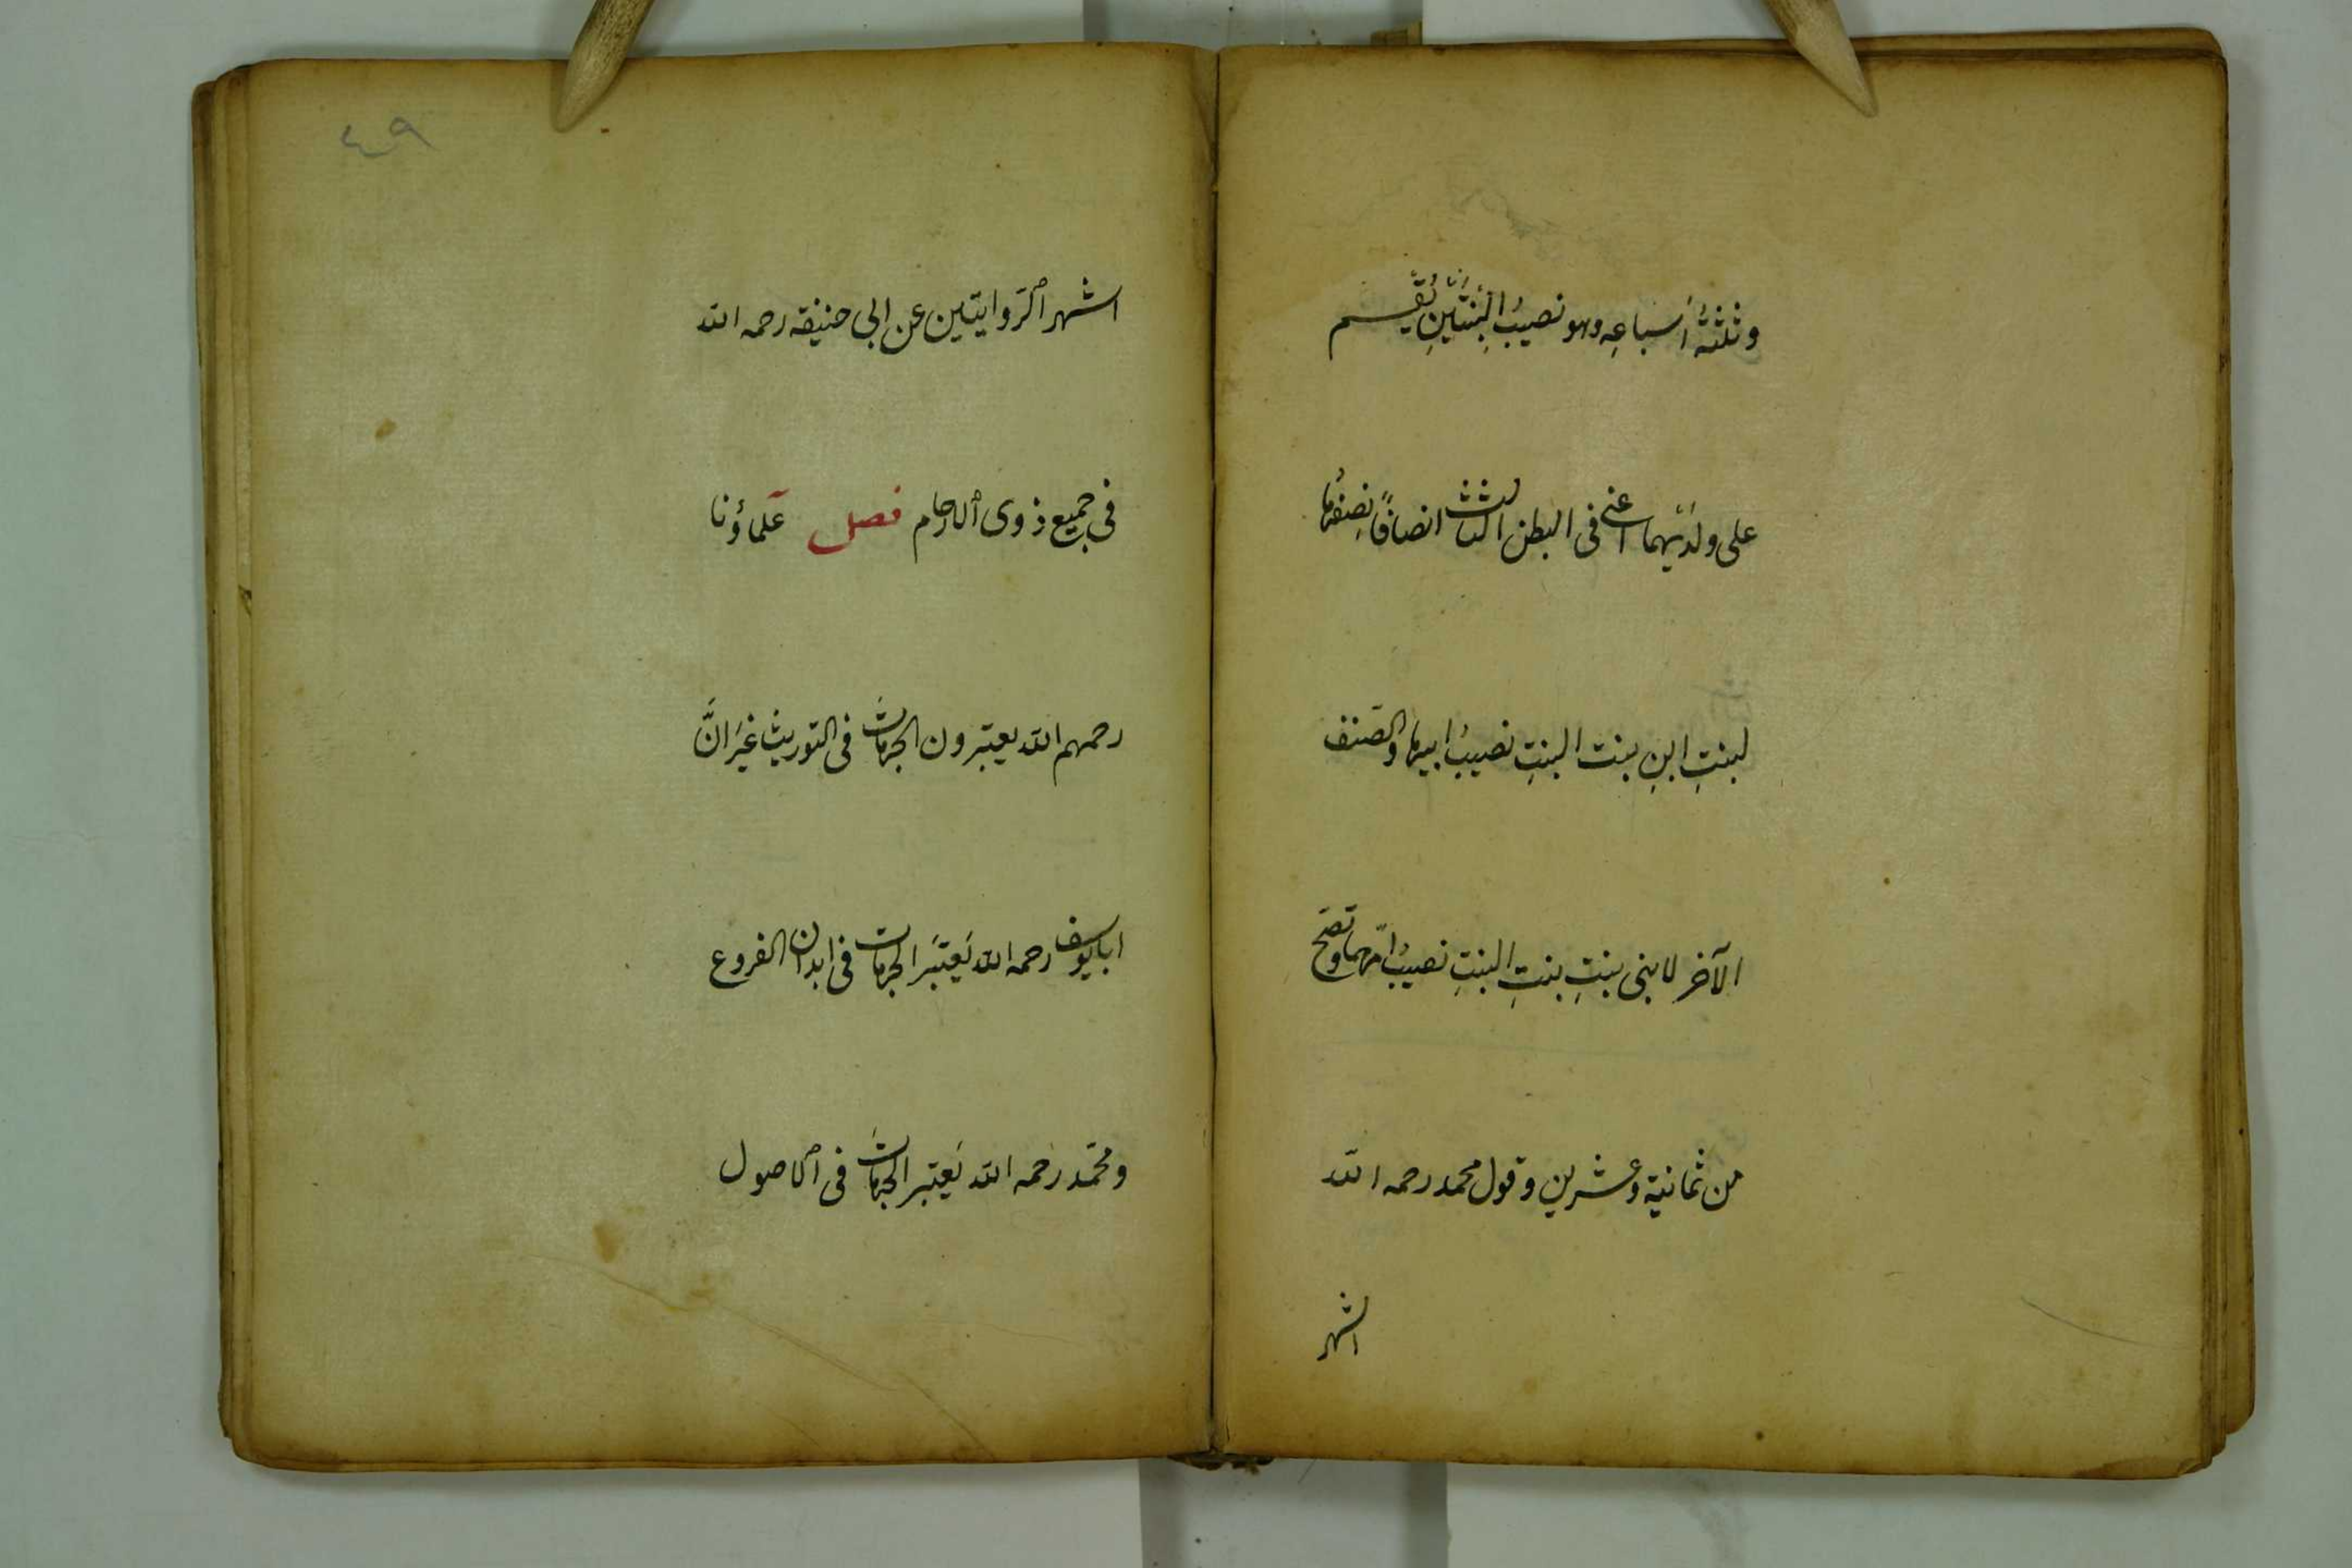 وثلثةُ أَسباعِه وهو نصيبُ البِنْتَيْنِ يُقَسم
على ولدَيْهما اعنى فى البطن الثالث انصافًا نِصفُها
لبنتِ ابنِ بنت البنتِ نصيبُ ابيها والنصف
الآخر لابنى بنتِ بنتِ البنتِ نصيبُ امّهما وتصحّ
من ثمانية وعشرين وقول محمد رحمه الله
اشهر
٤٩
اشهر الرّوايتين عن ابى حنيفه رحمه الله
فى جميع ذوى الارحام فصل علماؤنا
رحمهم الله يعتبرون الجهات فى التوريث غيرَ انَّ
ابا يوسف رحمه الله يَعتبَر الجهات فى ابدان الفروع
ومحمّد رَحمه الله يَعتبر الجهاتَ فى الاصول